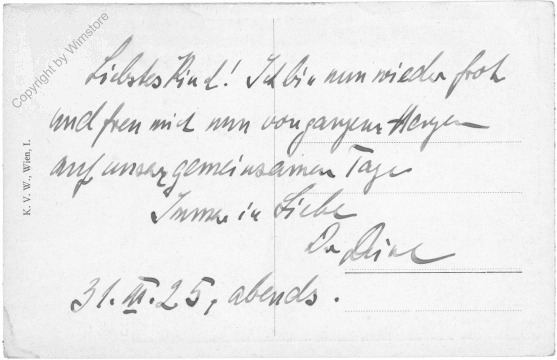 Liebstes Kind! Ich bin nun wieder froh
und freu mich nun von ganzem Herzen
auf unsere gemeinsamen Tage
Immer in Liebe
Deine
31. III. 25, abends.
K. V. W., Wien, I.
Copyright by Wimstore